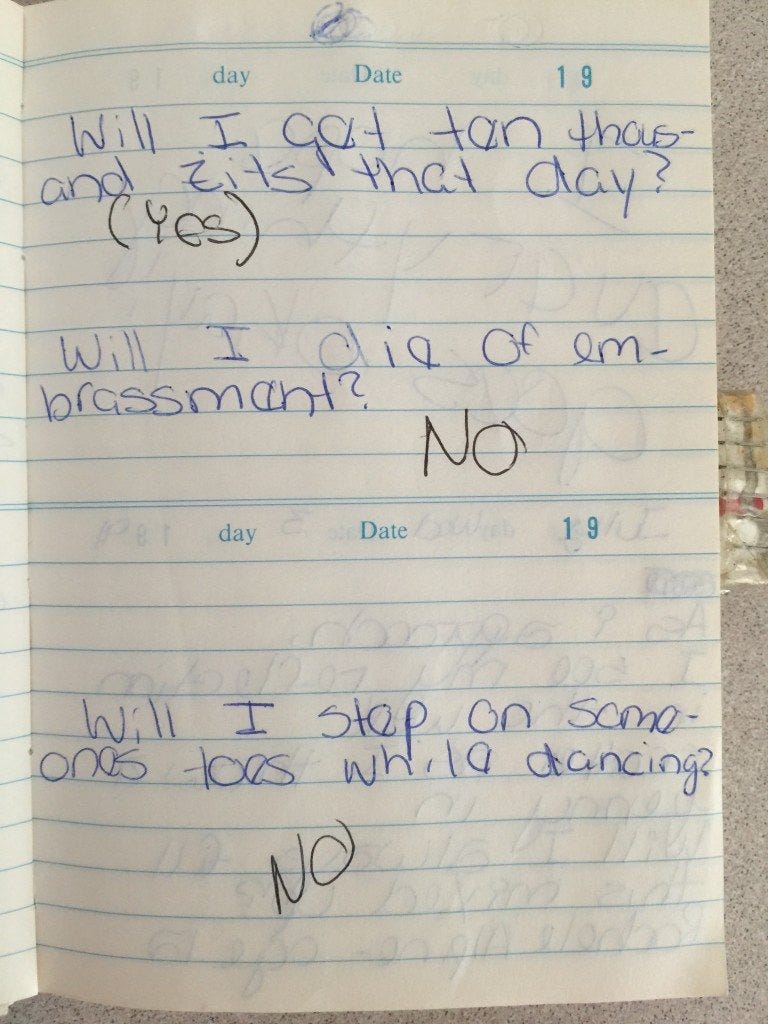 day Date 19
Will I get ten thous-
and zits that day?
(YES)
Will I die of em-
brassment?
NO
day Date 19
Will I step on some-
ones toes while dancing?
NO